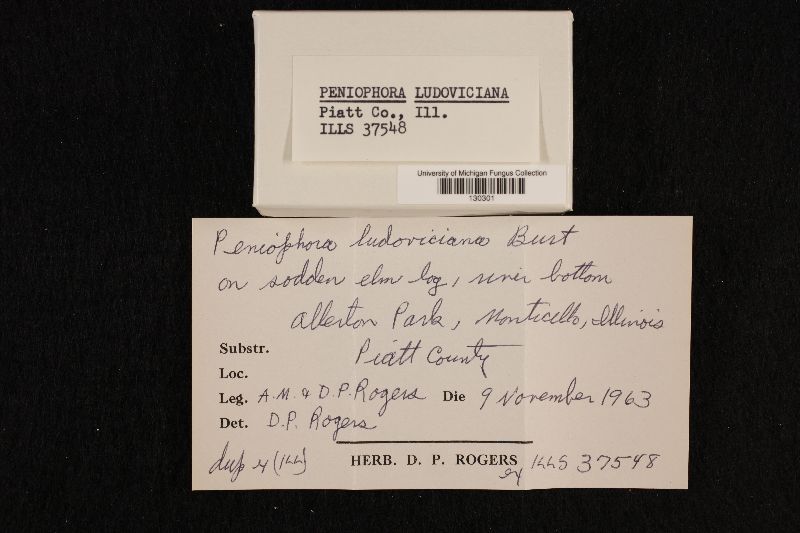 PENIOPHORA LUDOVICIANA
Piatt Co., Ill.
ILLS 37548
University of Michigan Fungus Collection
130301
Peniophora ludoviciana Burt
on sodden elm log, river bottom
Allerton Park, Monticello, Illinois
Substr. Piatt County
Loc.
Leg. A.M. & D.P. Rogers Die 9 November 1963
Det. D.P. Rogers
dup ex (ILL) HERB. D. P. ROGERS
ex ILLS 37548